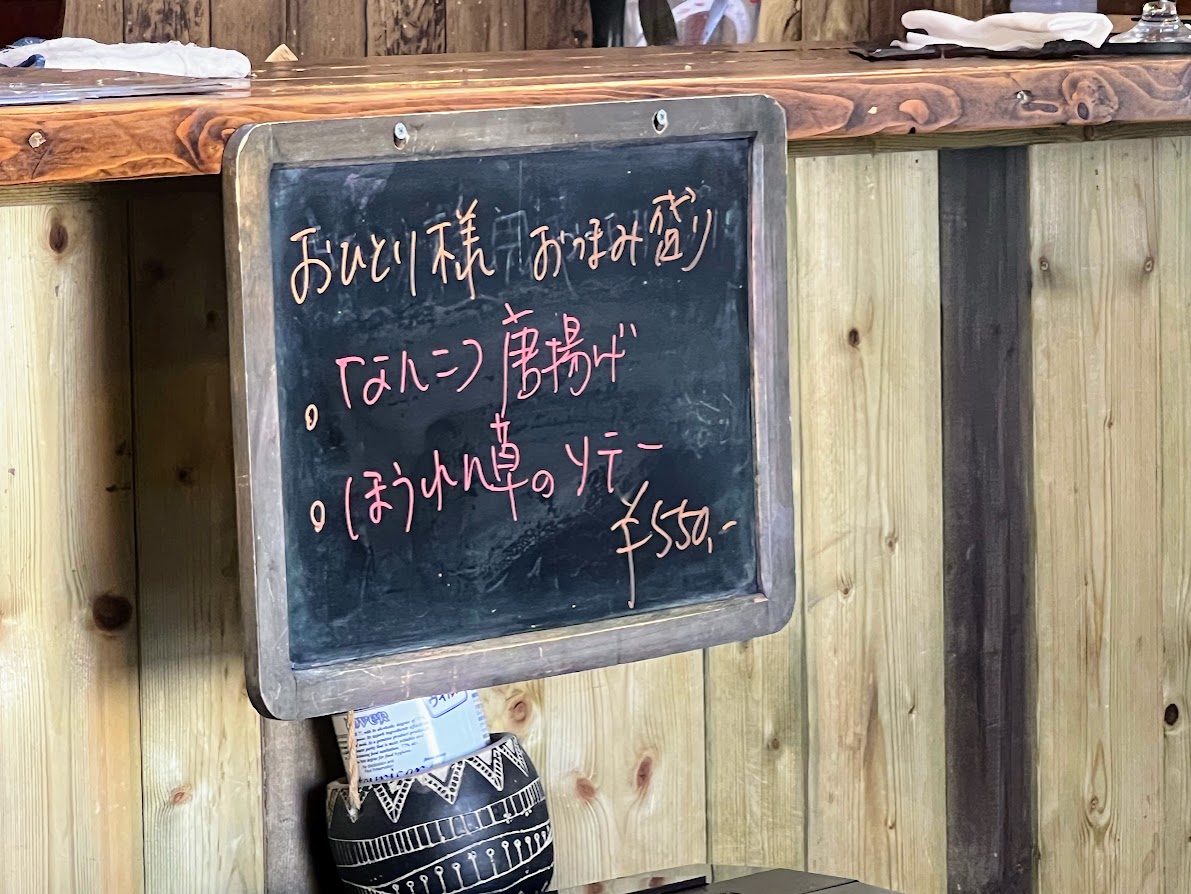 おひとり様 おつまみ盛り
。「なんこつ唐揚げ
。ほうれん草のソテー
¥550,-